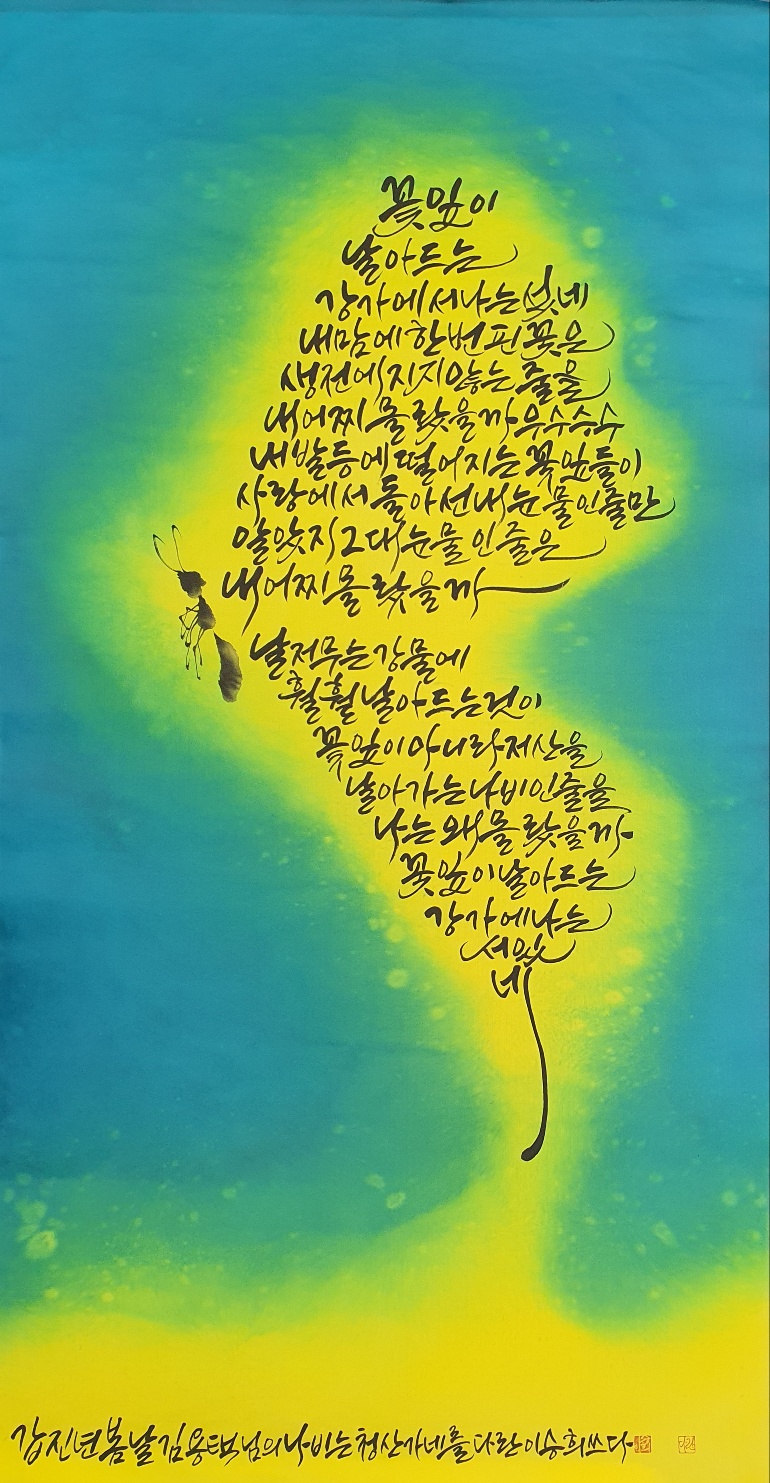 꽃잎이
날아드는
강가에서나는섰네
내맘에한번핀꽃은
생전에지지않는줄을
내어찌몰랐을까우수수수
내발등에떨어지는꽃잎들이
사랑에서돌아선내눈물인줄만
알았지그대눈물인줄은
내어찌몰랐을까
날저무는강물에
훨훨날아드는것이
꽃잎이아니라저산을
날아가는나비인줄을
나는왜몰랐을까
꽃잎이날아드는
강가에나는
서있
네
갑진년봄날김용택님의나비는청산가네를다란이승희쓰다